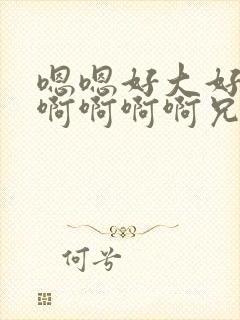 嗯嗯好大好
啊啊啊啊兄
何兮